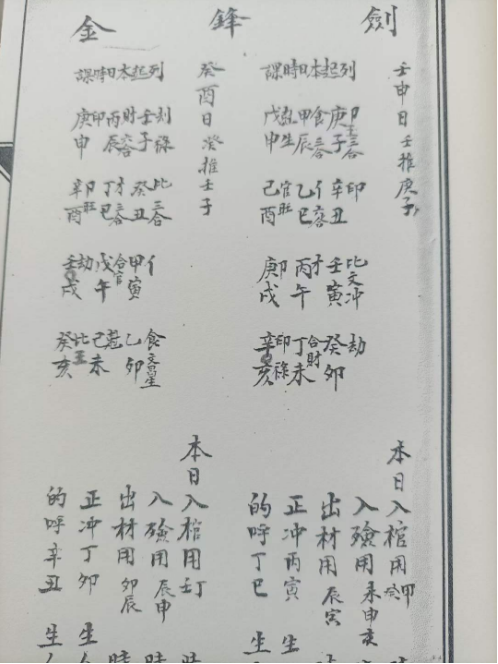 劍鋒金
壬申日壬推庚子
列起本日時課
庚子 印 三合
辛丑 印
壬寅 比 文 冲
癸卯 劫
甲辰 食 三合
乙巳 亻 六合
丙午 才
丁未 合財
戊申 生
己酉 官旺
庚戌 卩
辛亥 印祿
本日入棺用甲癸
入殮用未申亥
出材用辰寅
正冲丙寅生
的呼丁巳生
癸酉日癸推壬子
列起本日時課
壬子 劫祿
癸丑 比 三合
甲寅 亻
乙卯 食 文星
丙辰 財 六合
丁巳 才 三合
戊午 合官
己未
庚申 印
辛酉 卩旺
壬戌 劫
癸亥 比
本日入棺用壬丁
入殮用辰申
出材用卯辰
正冲丁卯生
的呼辛丑生